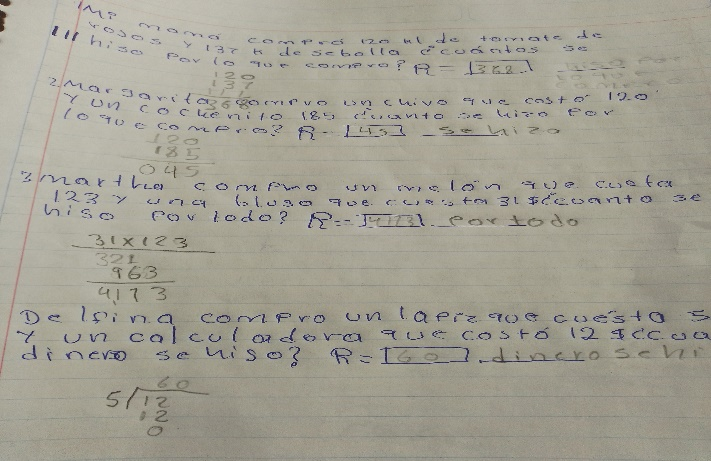 1 Mi mamá compró 120 kl de tomate de
rosos y 137 k de sebolla ¿cuántos se
hiso por lo que compro? R= 368.
120
137
111
368
2 Margarita compro un chivo que costó 120
y un cochenito 185 cuanto se hizo por
lo que compro? R= 45 se hizo
120
185
045
3 martha compro un melón que cuesta
123 y una blusa que cuesta 31 $ ¿cuanto se
hiso por todo? R= 4173 por todo
31x123
321
963
4173
Delfina compro un lapiz que cuesta 5
y un calculadora que costó 12 $ ¿cua
dinero se hiso? R= 60 dinero se hi
60
5/12
12
0